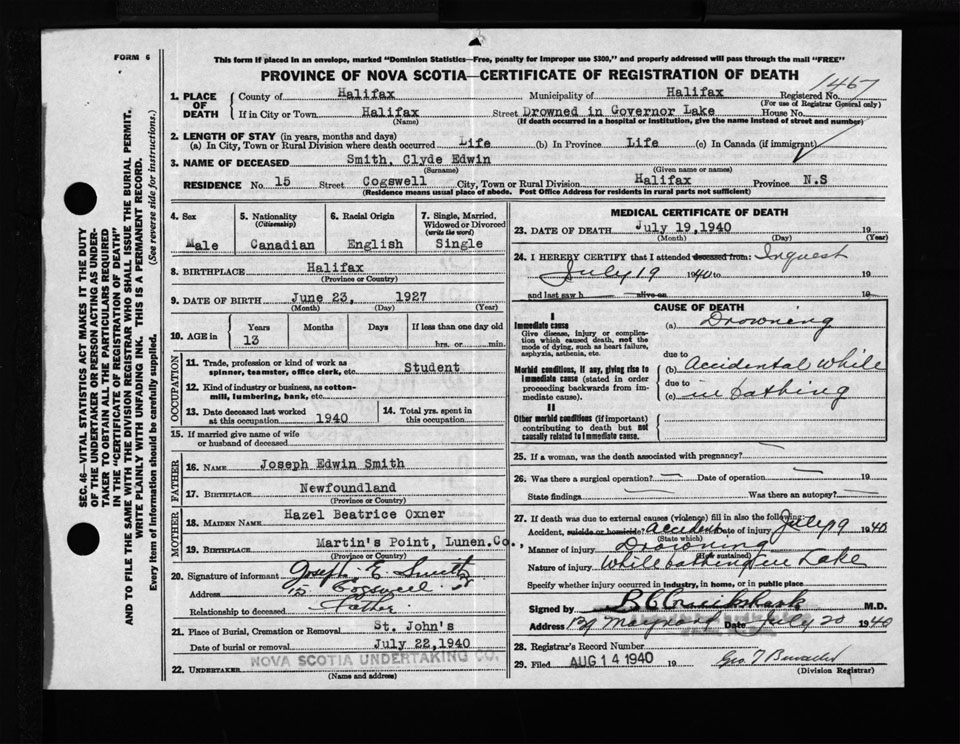 FORM 6
This form if placed in an envelope, marked "Dominion Statistics—Free, penalty for improper use $300," and properly addressed will pass through the mail "FREE"
PROVINCE OF NOVA SCOTIA—CERTIFICATE OF REGISTRATION OF DEATH
1467
1. PLACE OF DEATH
County of Halifax Municipality of Halifax Registered No.
(For use of Registrar General only)
If in City or Town Halifax Street Drowned in Governor Lake House No.
(Name) (If death occurred in a hospital or institution, give the name instead of street and number)
2. LENGTH OF STAY (in years, months and days)
(a) In City, Town or Rural Division where death occurred Life (b) In Province Life (c) In Canada (if immigrant)
3. NAME OF DECEASED Smith, Clyde Edwin
(Surname) (Given name or names)
RESIDENCE No. 15 Street Cogswell City, Town or Rural Division Halifax Province N.S
(Residence means usual place of abode. Post Office Address for residents in rural parts not sufficient)
4. Sex
Male
5. Nationality
(Citizenship)
Canadian
6. Racial Origin
English
7. Single, Married, Widowed or Divorced
(write the word)
Single
8. BIRTHPLACE Halifax
(Province or Country)
9. DATE OF BIRTH June 23, 1927
(Month) (Day) (Year)
10. AGE in
Years Months Days If less than one day old
13 hrs. or min.
OCCUPATION
11. Trade, profession or kind of work as spinner, teamster, office clerk, etc. Student
12. Kind of industry or business, as cotton-mill, lumbering, bank, etc.
13. Date deceased last worked at this occupation 1940
14. Total yrs. spent in this occupation
15. If married give name of wife or husband of deceased
FATHER
16. NAME Joseph Edwin Smith
17. BIRTHPLACE Newfoundland
(Province or Country)
MOTHER
18. MAIDEN NAME Hazel Beatrice Oxner
19. BIRTHPLACE Martin's Point, Lunen.Co.
(Province or Country)
20. Signature of informant Joseph E Smith
Address 15 Cogswell St
Relationship to deceased Father
21. Place of Burial, Cremation or Removal St. John's
Date of burial or removal July 22, 1940
22. UNDERTAKER NOVA SCOTIA UNDERTAKING CO.
(Name and address)
MEDICAL CERTIFICATE OF DEATH
23. DATE OF DEATH July 19, 1940 19
(Month) (Day) (Year)
24. I HEREBY CERTIFY that I attended deceased from: Inquest
July 19 1940 to 19
and last saw h alive on 19
CAUSE OF DEATH
I
Immediate cause
Give disease, injury or complication which caused death, not the mode of dying, such as heart failure, asphyxia, asthenia, etc.
(a) Drowning
due to
Morbid conditions, if any, giving rise to immediate cause (stated in order proceeding backwards from immediate cause).
(b) Accidental while
due to
(c) in bathing
II
Other morbid conditions (if important) contributing to death but not causally related to immediate cause.
25. If a woman, was the death associated with pregnancy?
26. Was there a surgical operation? Date of operation 19
State findings Was there an autopsy?
27. If death was due to external causes (violence) fill in also the following:
Accident, suicide or homicide? Accident Date of injury July 19 1940
(State which)
Manner of injury Drowning
(How sustained)
Nature of injury While bathing in Lake
Specify whether injury occurred in industry, in home, or in public place
Signed by M.D.
Address Date July 20 1940
28. Registrar's Record Number
29. Filed AUG 14 1940 19
(Division Registrar)
SEC. 46—VITAL STATISTICS ACT MAKES IT THE DUTY
OF THE UNDERTAKER OR PERSON ACTING AS UNDER-
TAKER TO OBTAIN ALL THE PARTICULARS REQUIRED
IN THE "CERTIFICATE OF REGISTRATION OF DEATH"
AND TO FILE THE SAME WITH THE DIVISION REGISTRAR WHO SHALL ISSUE THE BURIAL PERMIT.
WRITE PLAINLY WITH UNFADING INK. THIS IS A PERMANENT RECORD.
Every item of information should be carefully supplied. (See reverse side for instructions.)